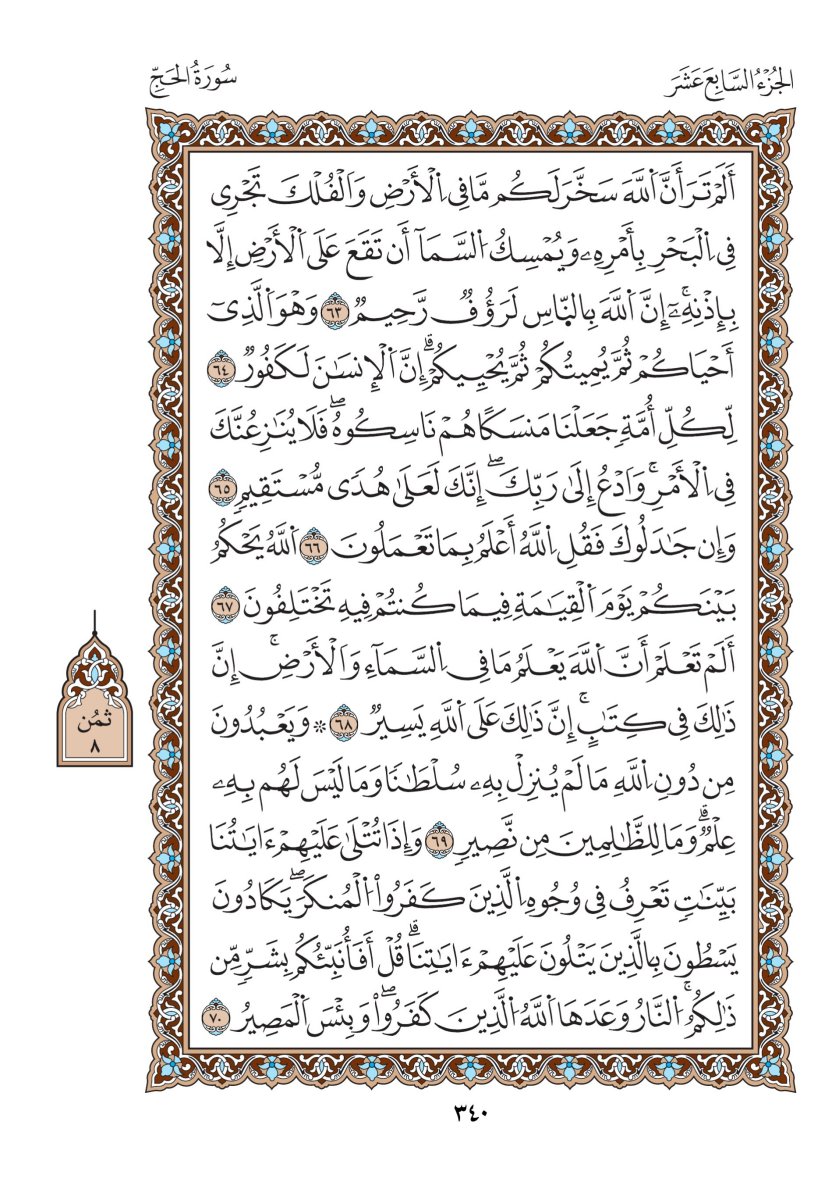 الجُزْءُ السَّابِعَ عَشَرَ
سُورَةُ الحَجِّ
أَلَمْ تَرَ أَنَّ اَ۬للَّهَ سَخَّرَ لَكُم مَّا فِي اِ۬لْأَرْضِ وَالْفُلْكَ تَجْرِي
فِي اِ۬لْبَحْرِ بِأَمْرِهِۦ وَيُمْسِكُ اُ۬لسَّمَآ أَن تَقَعَ عَلَى اَ۬لْأَرْضِ إِلَّا
بِإِذْنِهِۦٓۚ إِنَّ اَ۬للَّهَ بِالنَّاسِ لَرَؤُفٞ رَّحِيمٞ ٦٣ وَهْوَ اَ۬لَّذِيٓ
أَحْيَاكُمْ ثُمَّ يُمِيتُكُمْ ثُمَّ يُحْيِيكُمْۗ إِنَّ اَ۬لْإِنسَٰنَ لَكَفُورٞ ٦٤
لِّكُلِّ أُمَّةٖ جَعَلْنَا مَنسَكًا هُمْ نَاسِكُوهُۖ فَلَا يُنَٰزِعُنَّكَ
فِي اِ۬لْأَمْرِۚ وَادْعُ إِلَىٰ رَبِّكَۖ إِنَّكَ لَعَلَىٰ هُدٗى مُّسْتَقِيمٖ ٦٥
وَإِن جَٰدَلُوكَ فَقُلِ اِ۬للَّهُ أَعْلَمُ بِمَا تَعْمَلُونَ ٦٦ اَ۬للَّهُ يَحْكُمُ
بَيْنَكُمْ يَوْمَ اَ۬لْقِيَٰمَةِ فِيمَا كُنتُمْ فِيهِ تَخْتَلِفُونَ ٦٧
أَلَمْ تَعْلَمْ أَنَّ اَ۬للَّهَ يَعْلَمُ مَا فِي اِ۬لسَّمَآءِ وَالْأَرْضِۚ إِنَّ
ذَٰلِكَ فِي كِتَٰبٍۚ إِنَّ ذَٰلِكَ عَلَى اَ۬للَّهِ يَسِيرٞ ٦٨ * وَيَعْبُدُونَ
مِن دُونِ اِ۬للَّهِ مَا لَمْ يُنزِلْ بِهِۦ سُلْطَٰنٗا وَمَا لَيْسَ لَهُم بِهِۦ
عِلْمٞۗ وَمَا لِلظَّٰلِمِينَ مِن نَّصِيرٖ ٦٩ وَإِذَا تُتْلَىٰ عَلَيْهِمْ ءَايَٰتُنَا
بَيِّنَٰتٖ تَعْرِفُ فِي وُجُوهِ اِ۬لَّذِينَ كَفَرُواْ اُ۬لْمُنكَرَۖ يَكَادُونَ
يَسْطُونَ بِالَّذِينَ يَتْلُونَ عَلَيْهِمْ ءَايَٰتِنَاۗ قُلْ أَفَأُنَبِّئُكُم بِشَرّٖ مِّن
ذَٰلِكُمُۚ اُ۬لنَّارُ وَعَدَهَا اَ۬للَّهُ اُ۬لَّذِينَ كَفَرُواْۖ وَبِئْسَ اَ۬لْمَصِيرُ ٧٠
ثمُن
٨
٣٤٠